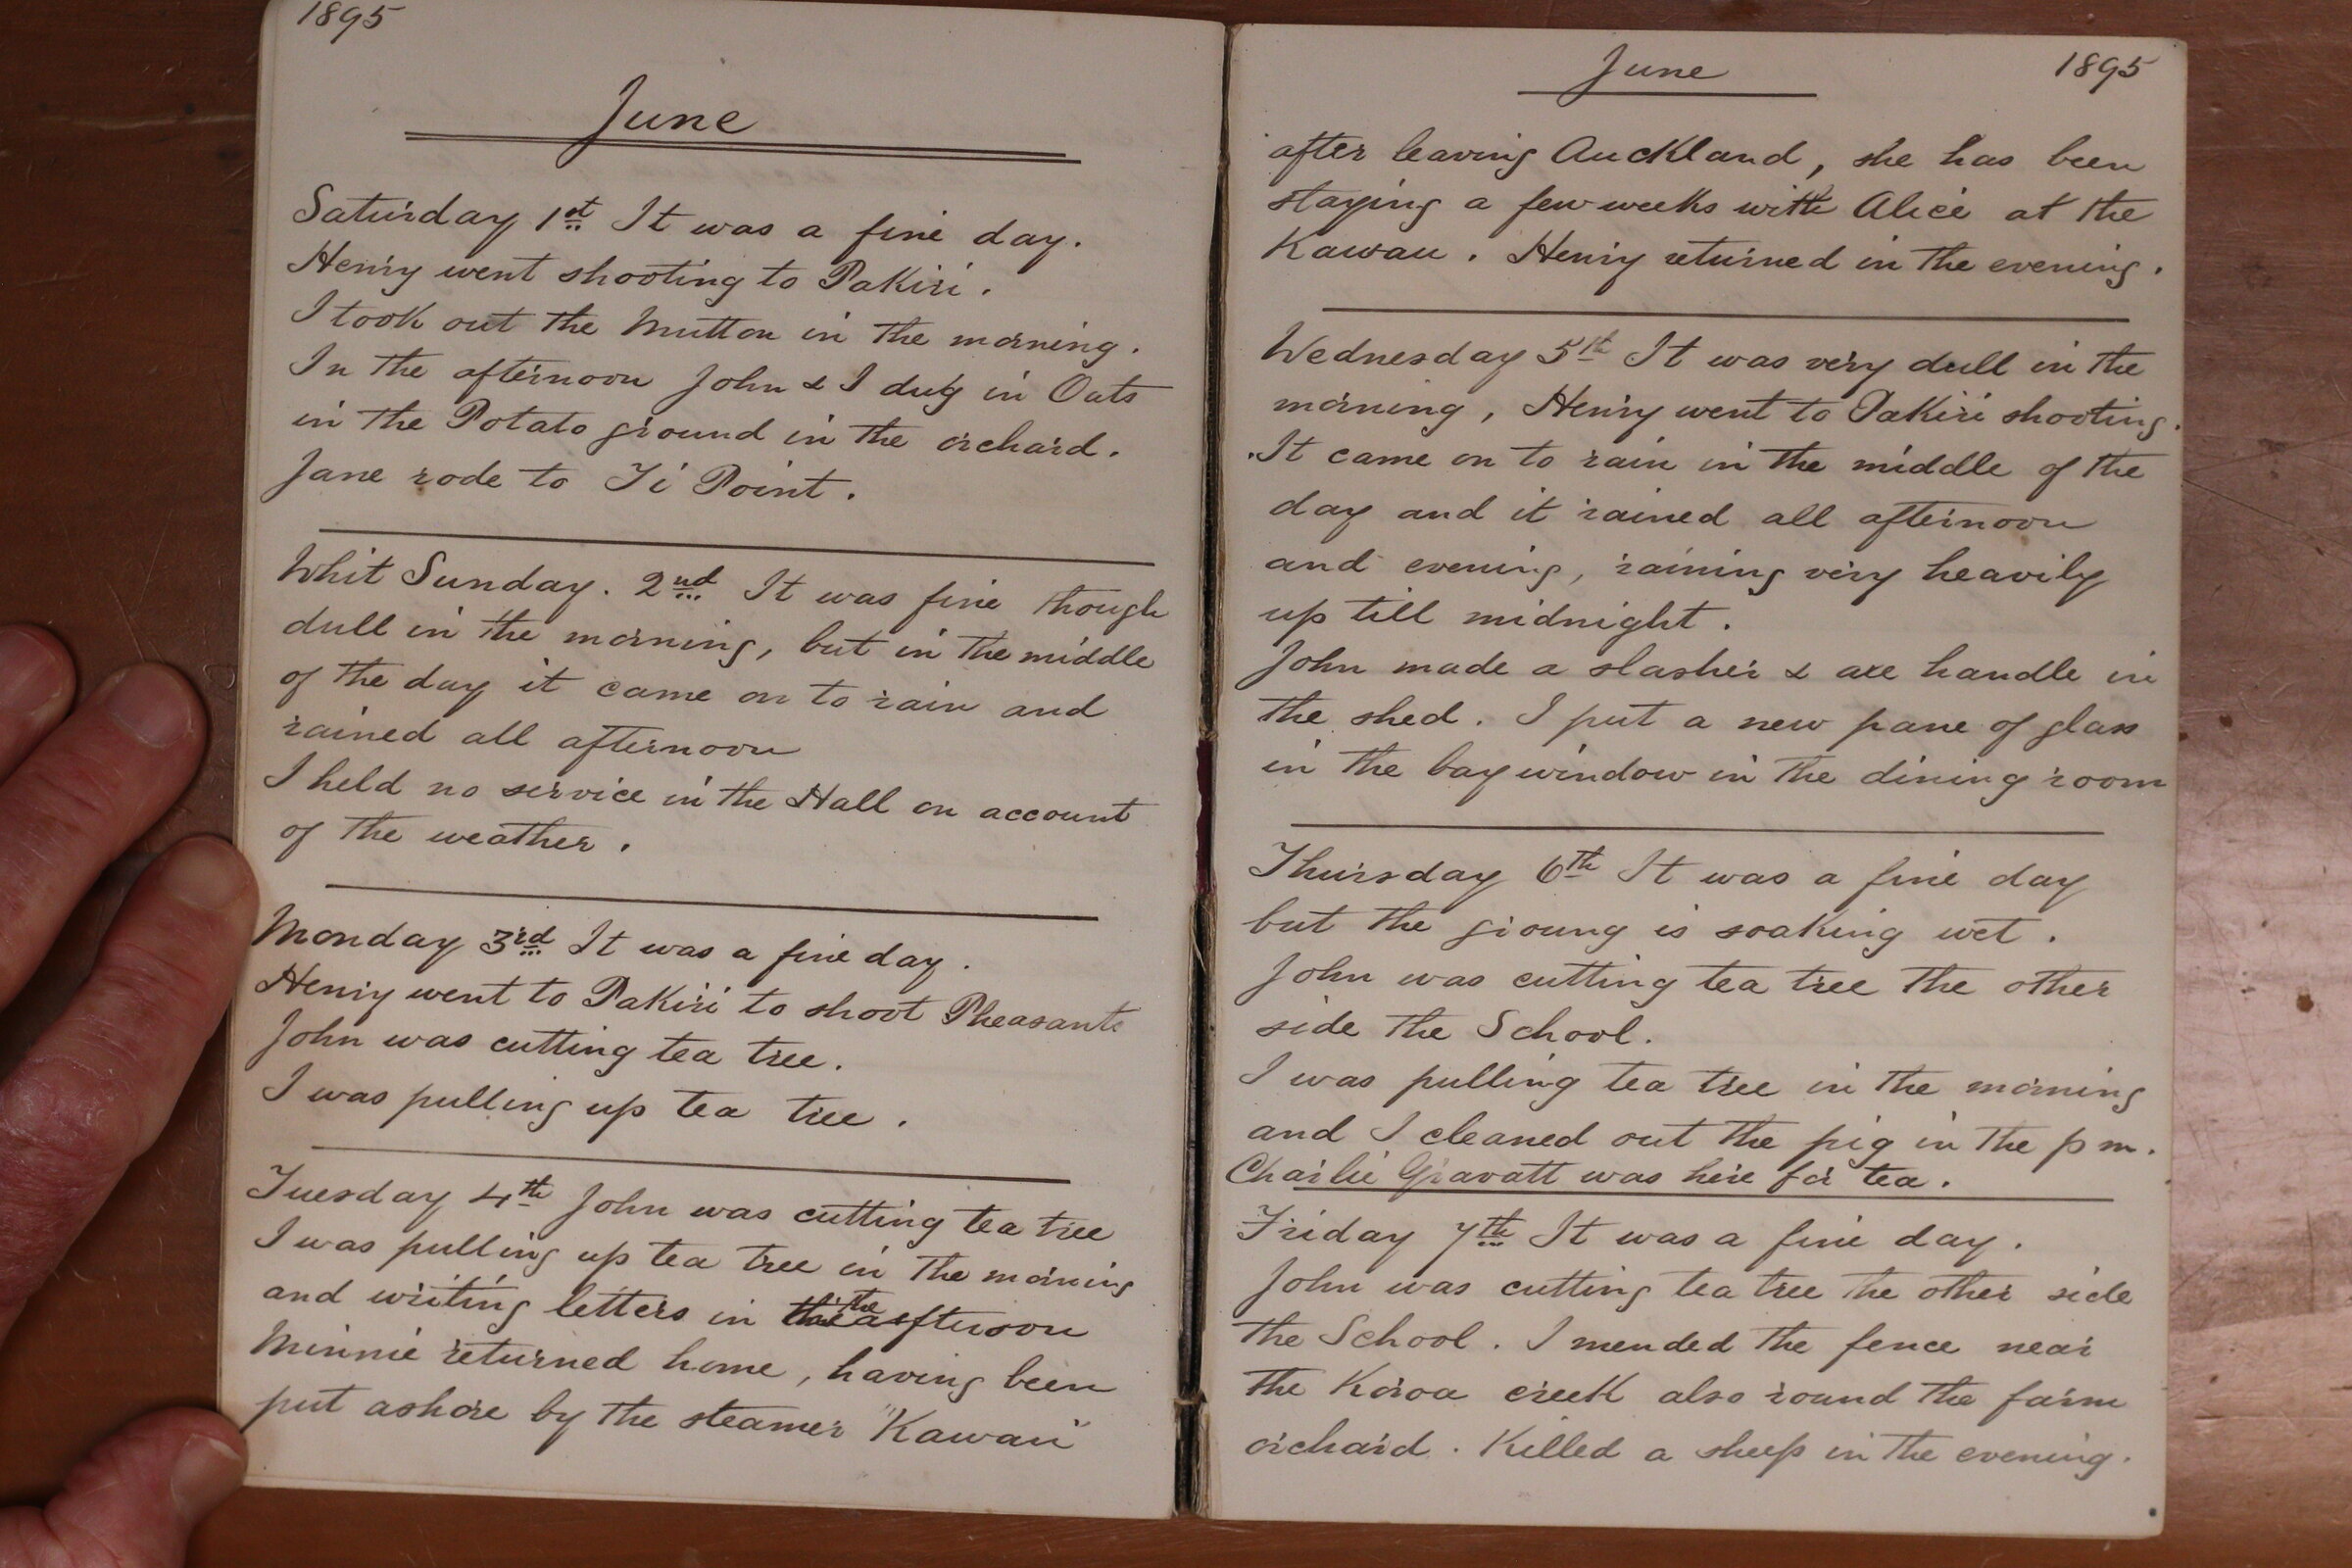 1895
June
Saturday 1st It was a fine day.
Henry went shooting to Pakiri.
I took out the Mutton in the morning.
In the afternoon John & I dug in Oats
in the Potato ground in the orchard.
Jane rode to Ti Point.
Whit Sunday. 2nd It was fine though
dull in the morning, but in the middle
of the day it came on to rain and
rained all afternoon
I held no service in the Hall on account
of the weather.
Monday 3rd It was a fine day.
Henry went to Pakiri to shoot Pheasants
John was cutting tea tree.
I was pulling up tea tree.
Tuesday 4th John was cutting tea tree
I was pulling up tea tree in the morning
and writing letters in the afternoon
Minnie returned home, having been
put ashore by the steamer "Kawau"
June 1895
after leaving Auckland, she has been
staying a few weeks with Alice at the
Kawau. Henry returned in the evening.
Wednesday 5th It was very dull in the
morning, Henry went to Pakiri shooting.
It came on to rain in the middle of the
day and it rained all afternoon
and evening, raining very heavily
up till midnight.
John made a slasher & axe handle in
the shed. I put a new pane of glass
in the bay window in the dining room
Thursday 6th It was a fine day
but the groung is soaking wet.
John was cutting tea tree the other
side the School.
I was pulling tea tree in the morning
and I cleaned out the pig in the p m.
Charlie Gravatt was here for tea.
Friday 7th It was a fine day.
John was cutting tea tree the other side
the School. I mended the fence near
the Koroa creek also round the farm
orchard. Killed a sheep in the evening.